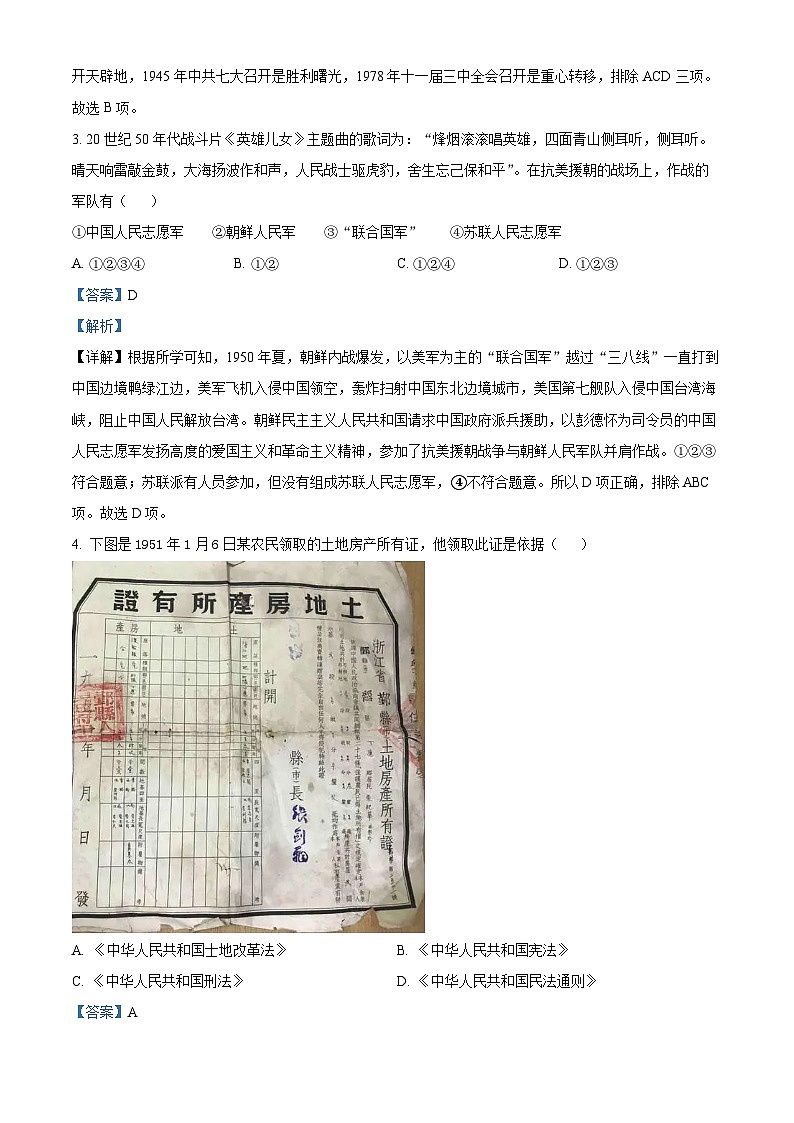 开天辟地，1945年中共七大召开是胜利曙光，1978年十一届三中全会召开是重心转移，排除ACD三项。
故选B项。
3. 20世纪50年代战斗片《英雄儿女》主题曲的歌词为：“烽烟滚滚唱英雄，四面青山侧耳听，侧耳听。
晴天响雷敲金鼓，大海扬波作和声，人民战士驱虎豹，舍生忘己保和平”。在抗美援朝的战场上，作战的
军队有（ ）
①中国人民志愿军 ②朝鲜人民军 ③“联合国军” ④苏联人民志愿军
A. ①②③④ B. ①② C. ①②④ D. ①②③
【答案】D
【解析】
【详解】根据所学可知，1950年夏，朝鲜内战爆发，以美军为主的“联合国军”越过“三八线”一直打到
中国边境鸭绿江边，美军飞机入侵中国领空，轰炸扫射中国东北边境城市，美国第七舰队入侵中国台湾海
峡，阻止中国人民解放台湾。朝鲜民主主义人民共和国请求中国政府派兵援助，以彭德怀为司令员的中国
人民志愿军发扬高度的爱国主义和革命主义精神，参加了抗美援朝战争与朝鲜人民军队并肩作战。①②③
符合题意；苏联派有人员参加，但没有组成苏联人民志愿军，④不符合题意。所以D项正确，排除ABC
项。故选D项。
4. 下图是1951年1月6日某农民领取的土地房产所有证，他领取此证是依据（ ）
證有所產房地土
浙江省 鄞縣 土地房產所有證
計開
縣（市）長
產房 地 土
一九
年 月 日 發
A. 《中华人民共和国土地改革法》 B. 《中华人民共和国宪法》
C. 《中华人民共和国刑法》 D. 《中华人民共和国民法通则》
【答案】A